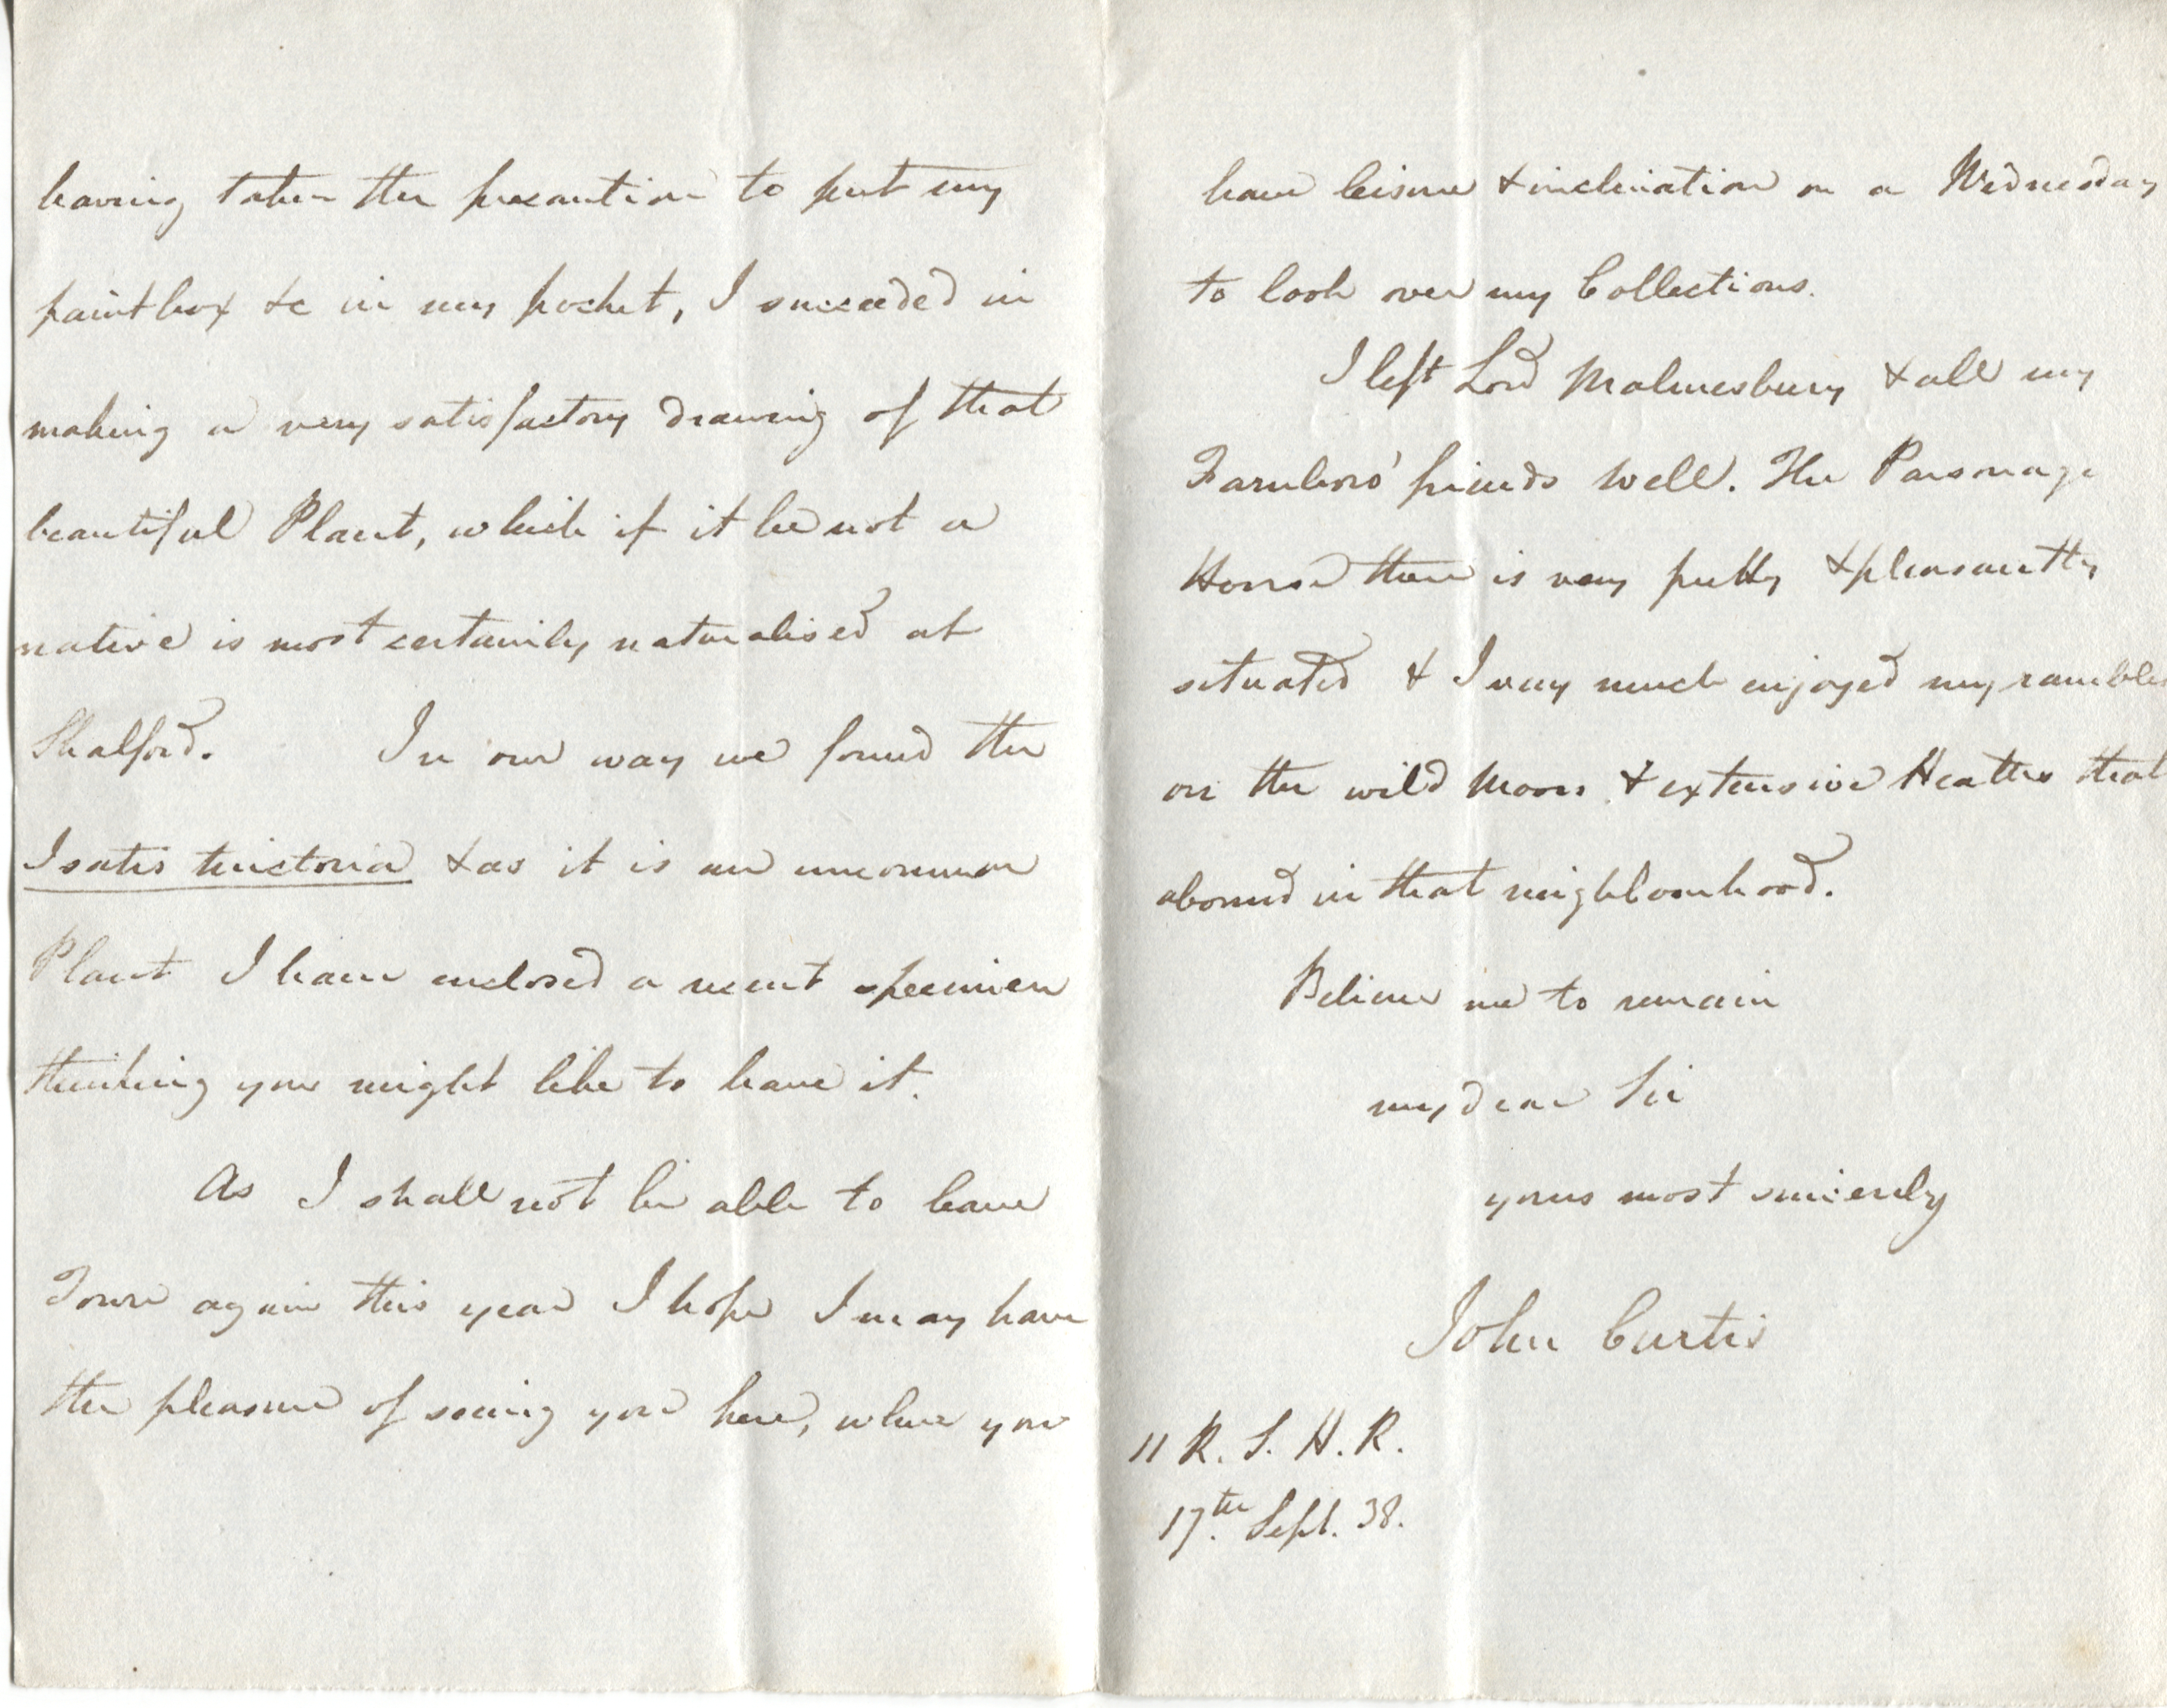 having taken the precaution to put my
paintbox &c in my pocket, I succeeded in
making a very satisfactory drawing of that
beautiful Plant, which if it be not a
native is most certainly naturalised at
Shalford. In our way we found the
Isatis tinctoria & as it is an uncommon
Plant I have enclosed a recent specimen
thinking you might like to have it.
As I shall not be able to leave
Town again this year I hope I may have
the pleasure of seeing you here, when you
have leisure & inclination on a Wednesday
to look over my Collections.
I left Lord Malmesbury & all my
Farnboro' friends well. The Parsonage
House there is very pretty & pleasantly
situated & I very much enjoyed my rambles
on the wild Moors & extensive Heaths that
abound in that neighbourhood.
Believe me to remain
my dear Sir
yours most sincerely
John Curtis
11 R. S. H. R.
17th. Sept. 38.